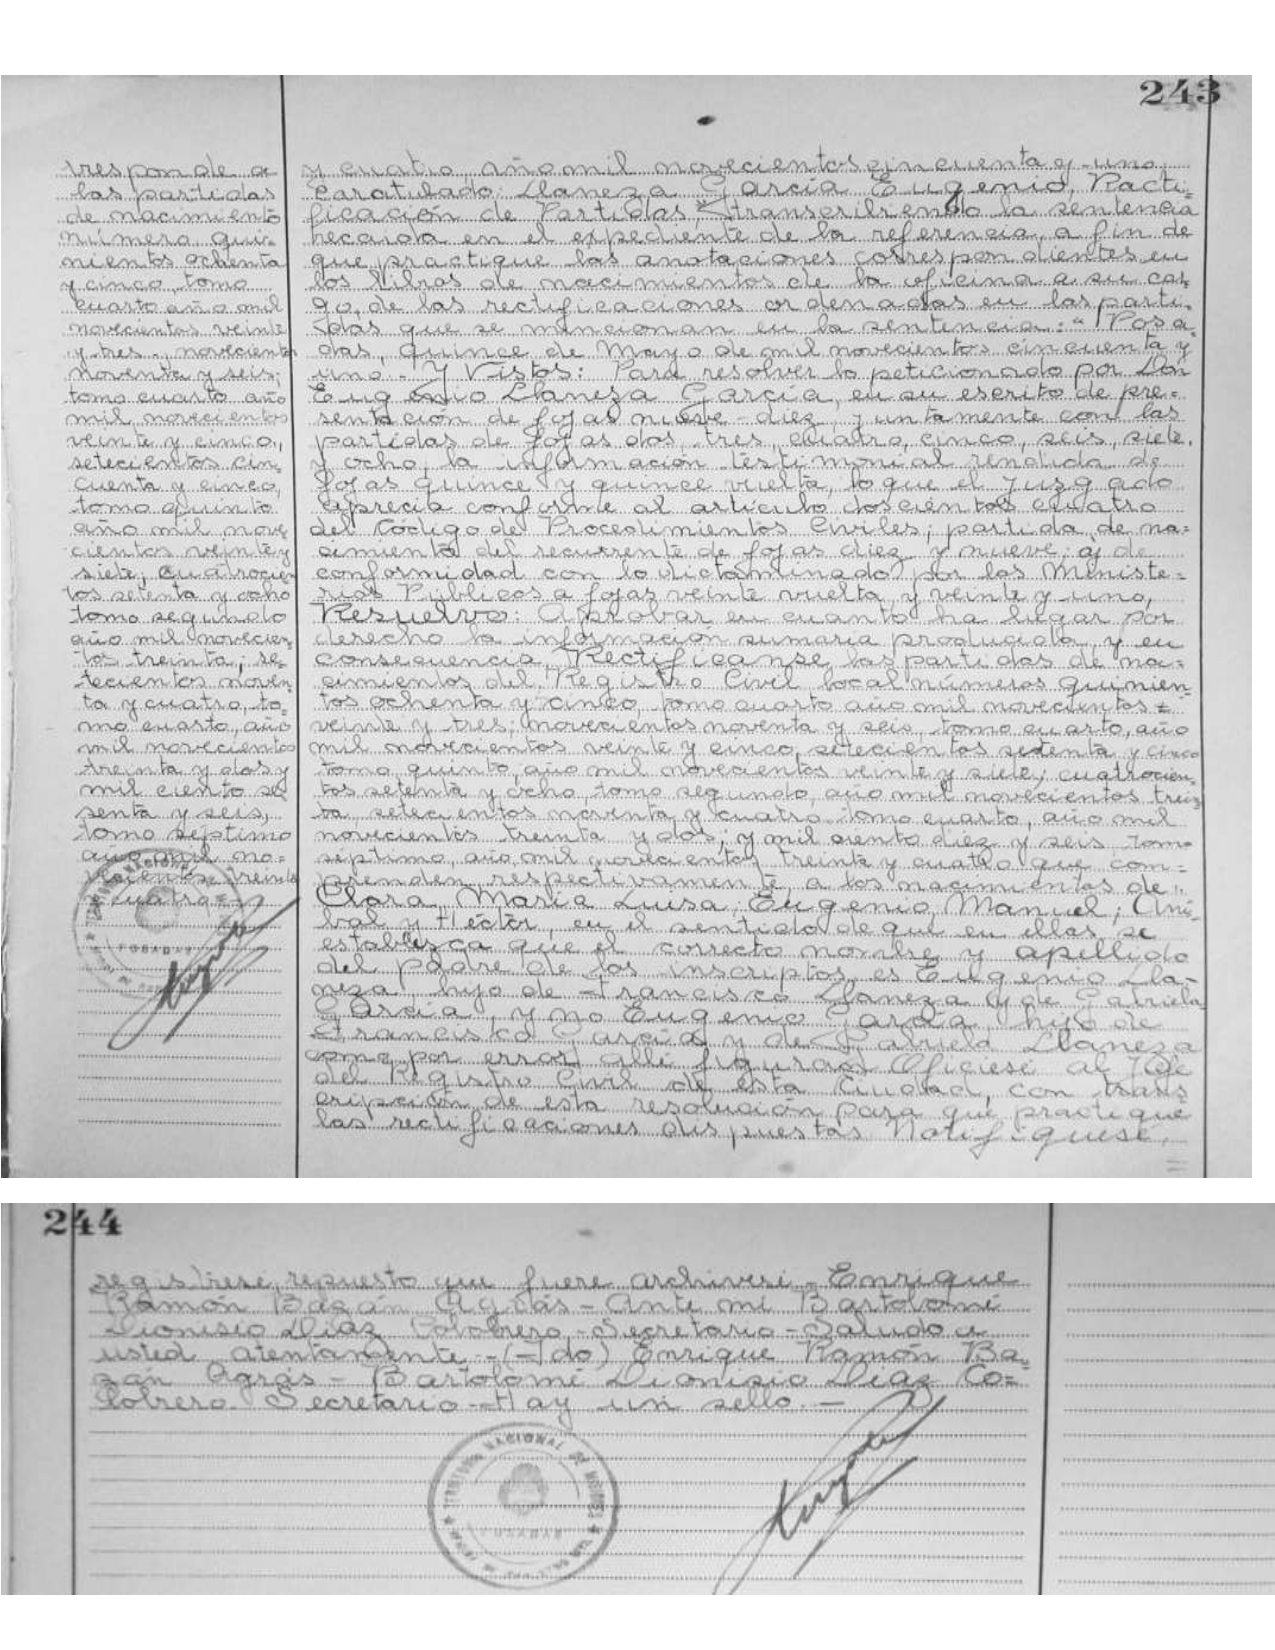 243
tresponde a
las partidas
de nacimiento
número qui-
nientos ochenta
y cinco, tomo
cuarto año mil
novecientos veinte
y tres; novecientos
noventa y seis;
tomo cuarto año
mil novecientos
veinte y cinco,
setecientos cin-
cuenta y cinco,
tomo quinto
año mil nove-
cientos veinte y
siete; cuatrocien-
tos setenta y ocho
tomo segundo
año mil novecien-
tos treinta; se-
tecientos noven-
ta y cuatro, to-
mo cuarto, año
mil novecientos
treinta y dos y
mil ciento se
senta y seis,
tomo séptimo
año mil no=
vecientos treinta
y cuatro=
POSADAS
y cuatro año mil novecientos cincuenta y uno,
caratulado: Llaneza García Eugenio, Recti-
ficación de Partidas, transcribiendo la sentencia
recaída en el expediente de la referencia, a fin de
que practique las anotaciones correspondientes en
los libros de nacimientos de la oficina a su car-
go, de las rectificaciones ordenadas en las parti-
das que se mencionan en la sentencia: "Posa-
das, quince de Mayo de mil novecientos cincuenta y
uno.- Y Vistos: Para resolver lo peticionado por Don
Eugenio Llaneza García, en su escrito de pre=
sentación de fojas nueve-diez, juntamente con las
partidas de fojas dos, tres, cuatro, cinco, seis, siete,
y ocho, la información testimonial rendida de
fojas quince y quince vuelta, lo que el Juzgado
aprecia conforme al artículo doscientos cuatro
del Código de Procedimientos Civiles; partida de na=
cimiento del recurrente de fojas diez y nueve; de
conformidad con lo dictaminado por los Ministe=
rios Públicos a fojas veinte vuelta y veinte y uno,
Resuelvo: Aprobar en cuanto ha lugar por
derecho la información sumaria producida, y en
consecuencia, Rectifícanse las partidas de na=
cimientos del Registro Civil local números quinien-
tos ochenta y cinco, tomo cuarto año mil novecientos
veinte y tres; novecientos noventa y seis, tomo cuarto, año
mil novecientos veinte y cinco, setecientos setenta y cinco
tomo quinto, año mil novecientos veinte y siete; cuatrocien-
tos setenta y ocho, tomo segundo, año mil novecientos trein-
ta, setecientos noventa y cuatro tomo cuarto, año mil
novecientos treinta y dos; y mil ciento diez y seis tomo
séptimo, año mil novecientos treinta y cuatro que com=
prenden, respectivamente, a los nacimientos de
Clara, María Luisa; Eugenio, Manuel; Aní-
bal y Héctor, en el sentido de que en ellas se
establezca que el correcto nombre y apellido
del padre de los inscriptos, es Eugenio Lla-
neza, hijo de Francisco Llaneza y de Gabriela
García, y no Eugenio García, hijo de
Francisco García y de Gabriela Llaneza
como por error allí figuran. Ofíciese al Jefe
del Registro Civil de esta Ciudad, con trans
cripción de esta resolución para que practique
las rectificaciones dispuestas. Notifíquese,
244
regístrese, repuesto que fuere archívese.- Enrique
Ramón Bazán Agrás - Ante mí Bartolomé
Dionisio Díaz Colobrero,- Secretario - Saludo a
usted atentamente.-(Fdo) Enrique Ramón Ba-
zán Agrás - Bartolomé Dionisio Díaz Co=
lobrero. Secretario - Hay un sello.-
TERRITORIO NACIONAL DE MISIONES
POSADAS